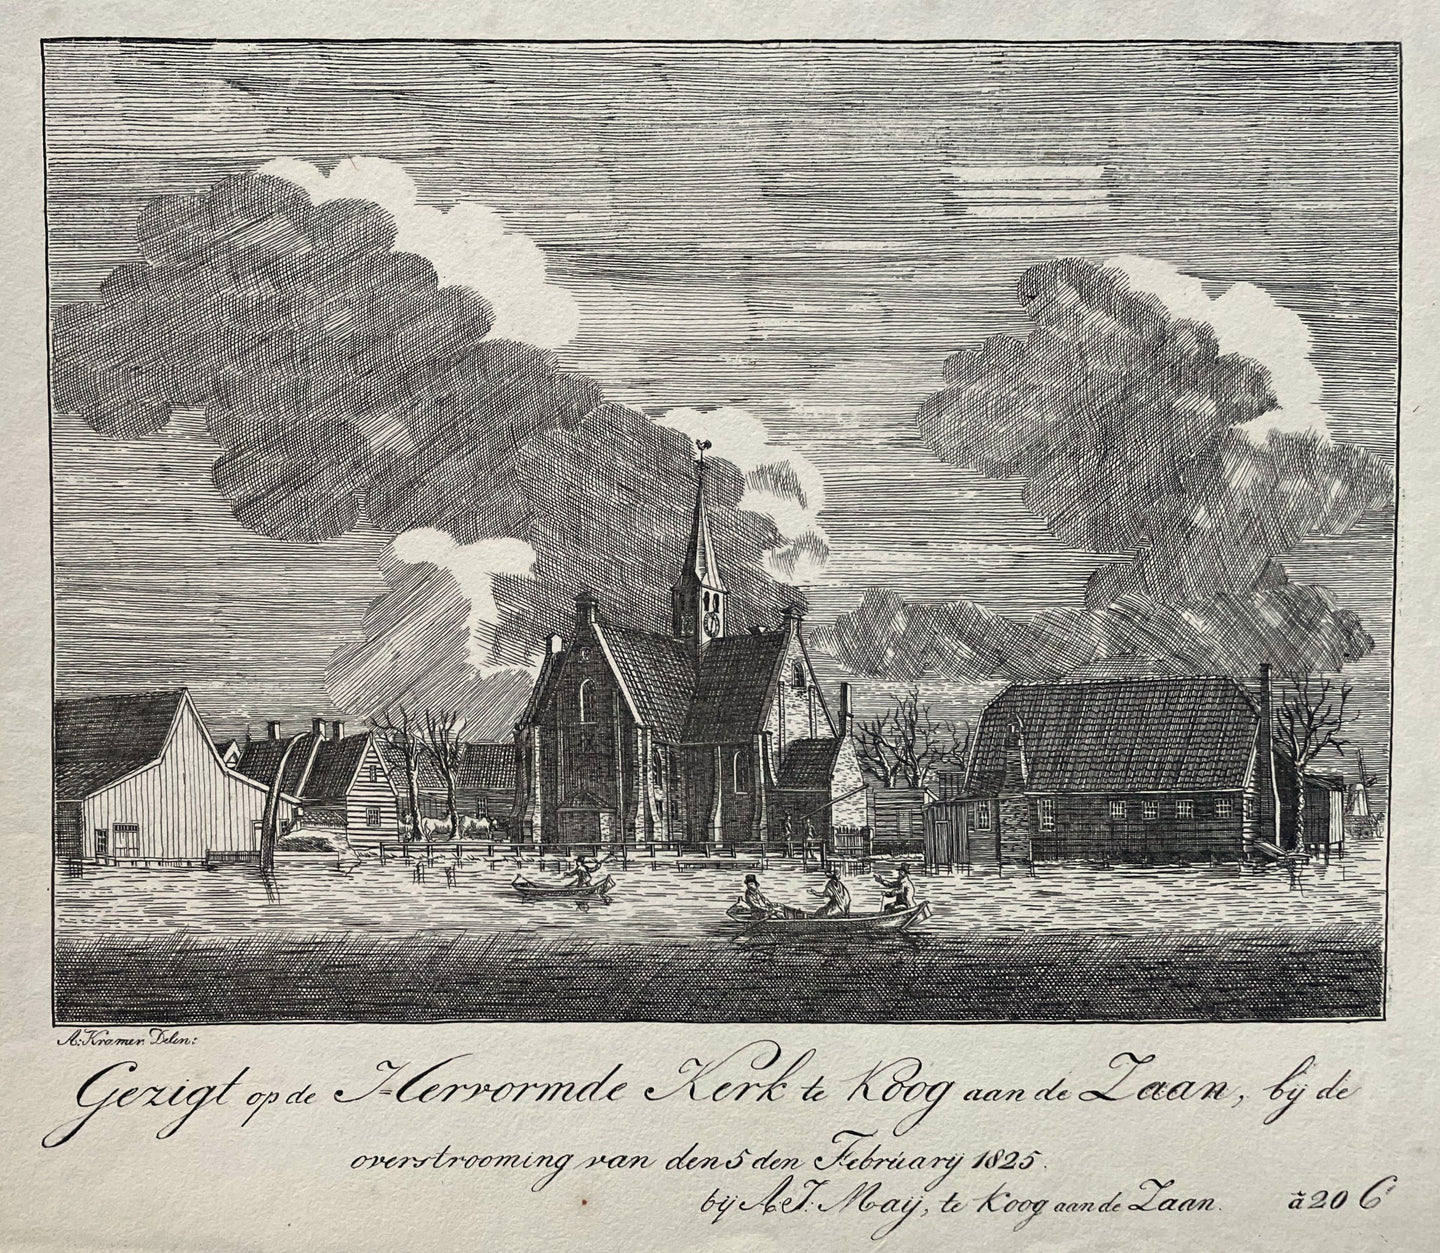 A: Kramer. Delin:
Gezigt op de Hervormde Kerk te Koog aan de Zaan, bij de
overstrooming van den 5 den Februarij 1825.
bij A: J: Maij, te Koog aan de Zaan. à 20 C